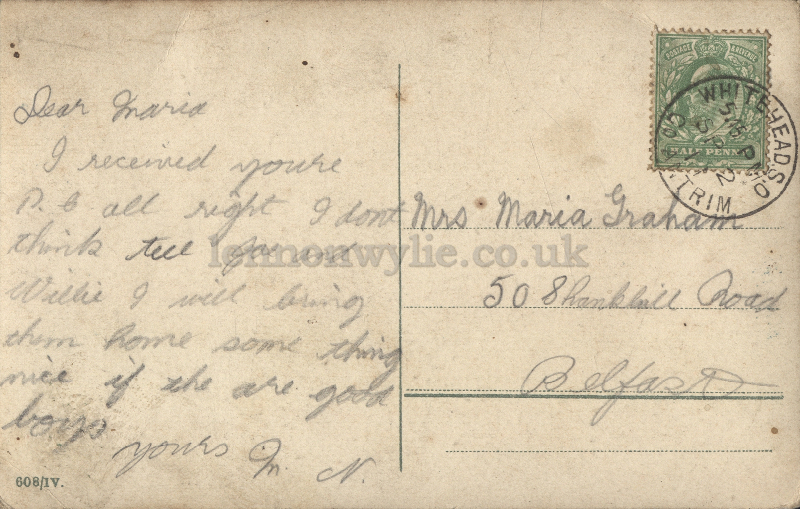 Dear Maria
I received youre
P. C all right I dont
think tell Joe and
Willie I will bring
them home some thing
nice if the are good
boys
yours
M. N.
608/IV.
POSTAGE & REVENUE
HALF PENNY
WHITEHEAD S.O
CO ANTRIM
Mrs Maria Graham
508 Shankhill Road
Belfast
lennonwylie.co.uk